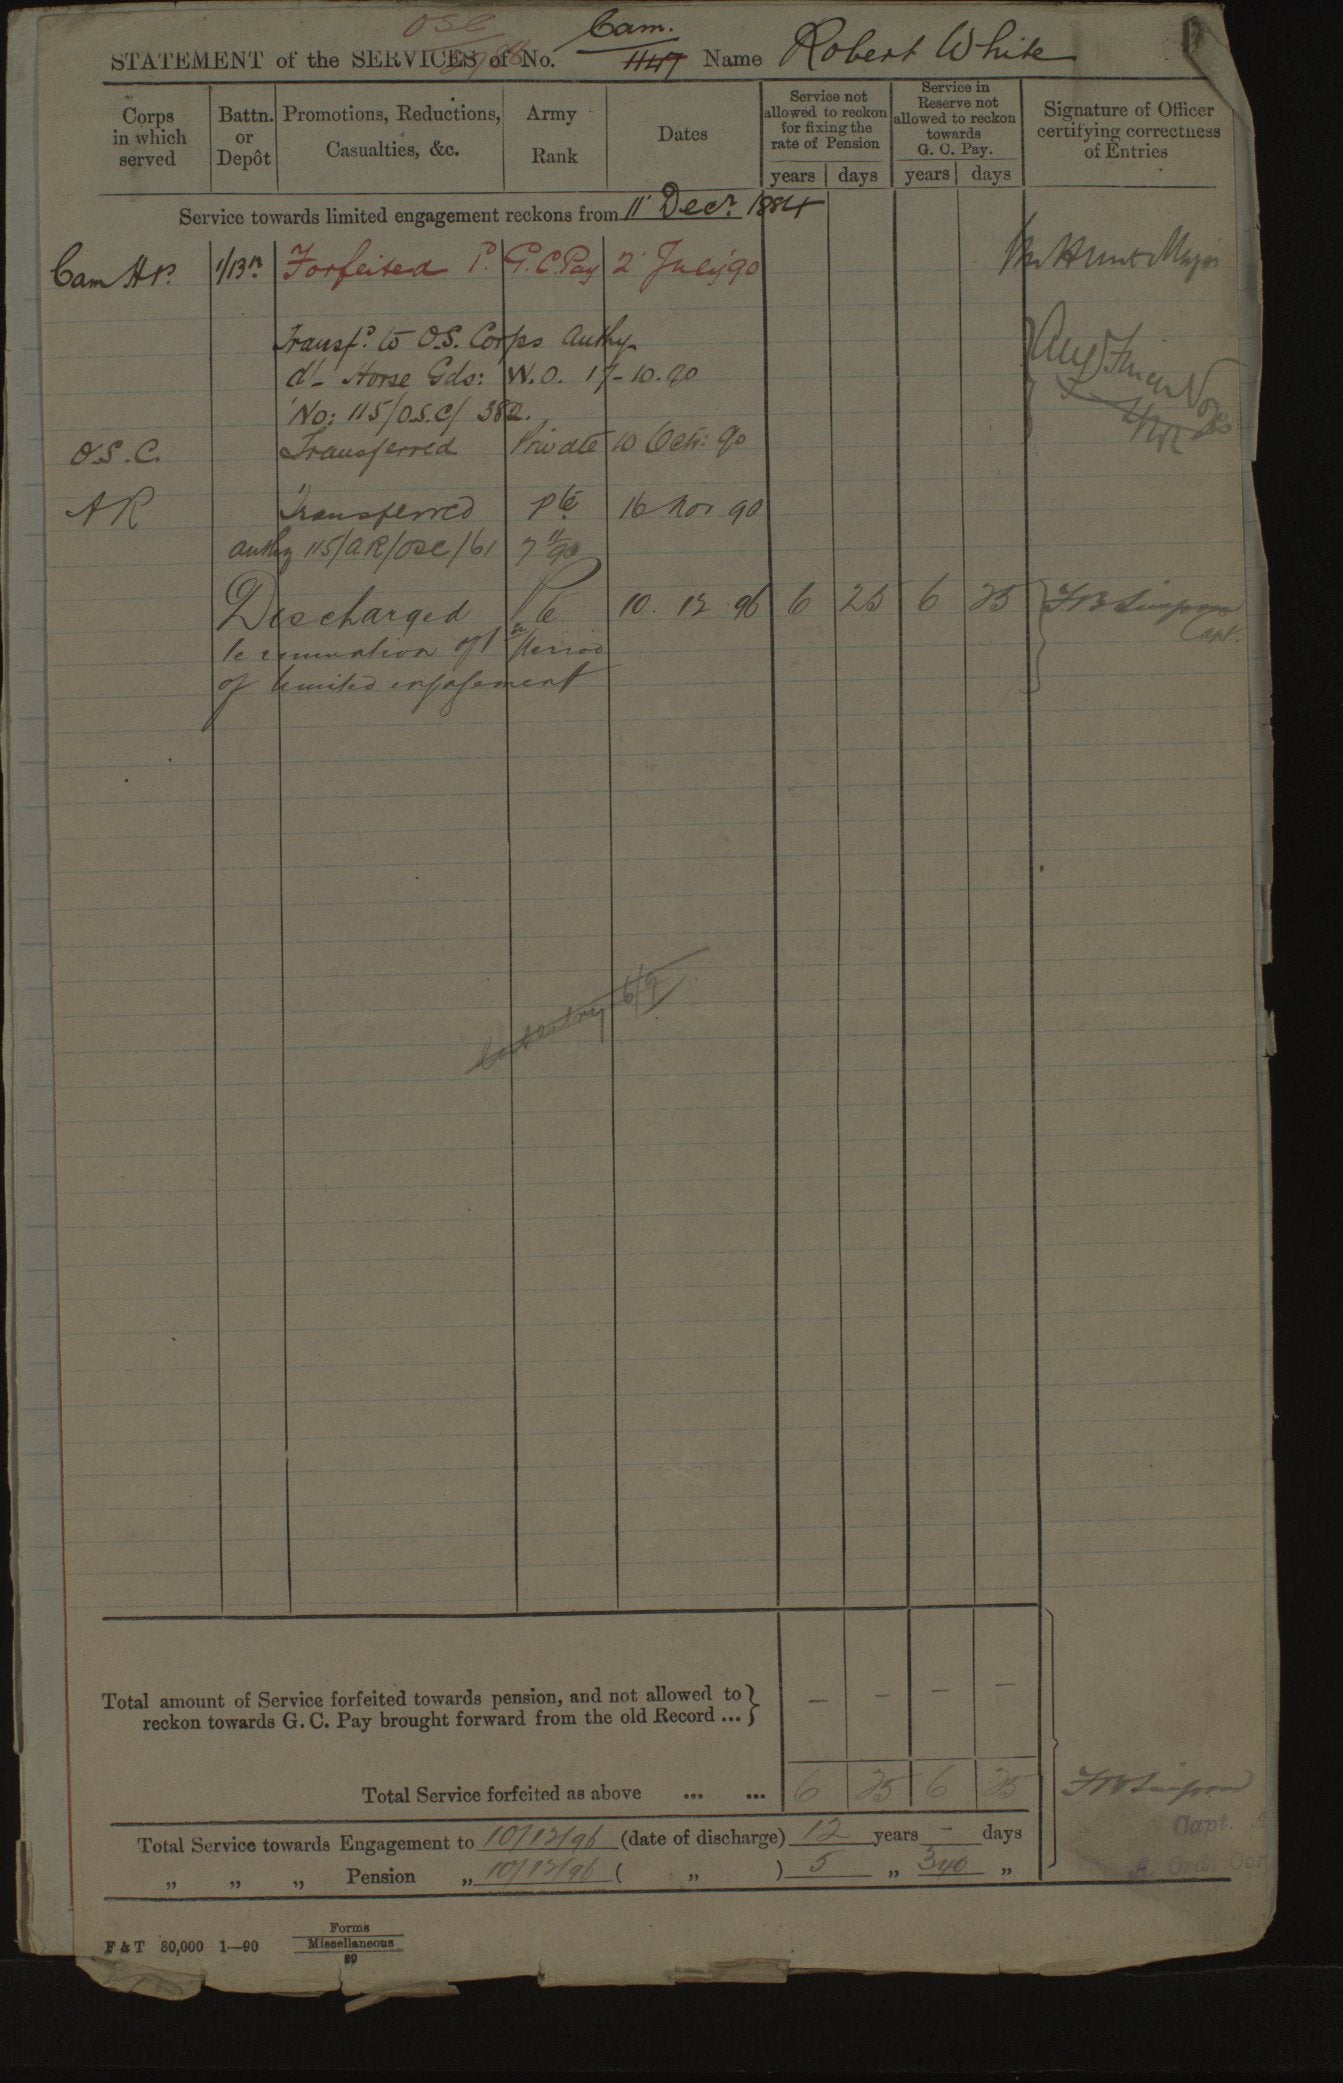 OSC
Cam.
STATEMENT of the SERVICES of No. 1147 Name Robert White
Corps in which served
Battn. or Depôt
Promotions, Reductions, Casualties, &c.
Army Rank
Dates
Service not allowed to reckon for fixing the rate of Pension
Service in Reserve not allowed to reckon towards G. C. Pay.
Signature of Officer certifying correctness of Entries
years days years days
Service towards limited engagement reckons from 11 Decr. 1884
Cam Hrs. Forfeited P. G.C. Pay 2 July '90 Hunt Major
Transfd. to O.S. Corps Authy
d/- Horse Gds: W.O. 17-10.90
No: 115/O.S.C/382.
O.S.C. Transferred Private 10 Octr: 90
AR Transferred Pte 16 Nov 90
authy 115/AR/OSC/61 7 11/90
Discharged Pte 10. 12 96 6 25 6 25 Simpson
Capt.
termination of 1st Period
of limited engagement
6/9
Total amount of Service forfeited towards pension, and not allowed to } – – – –
reckon towards G. C. Pay brought forward from the old Record ...
Total Service forfeited as above ... ... 6 25 6 25 Simpson
Capt.
A. Ord. Cor
Total Service towards Engagement to 10/12/96 (date of discharge) 12 years – days
„ „ „ Pension „ 10/12/96 ( „ ) 5 „ 340 „
F & T 80,000 1—90
Forms
Miscellaneous